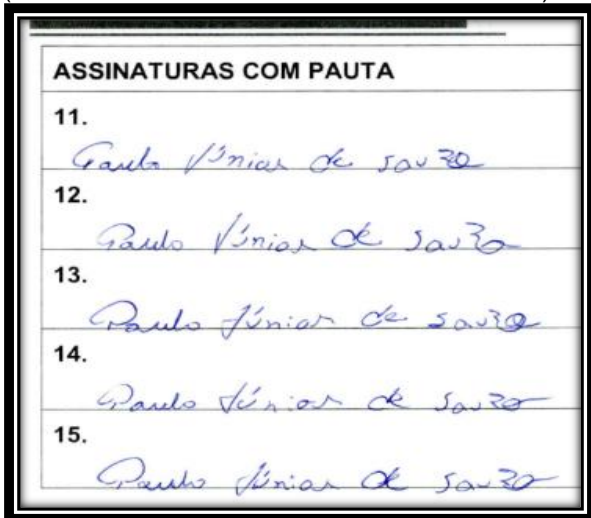 ASSINATURAS COM PAUTA
11.
Paulo Júnior de Souza
12.
Paulo Júnior de Souza
13.
Paulo Júnior de Souza
14.
Paulo Júnior de Souza
15.
Paulo Júnior de Souza